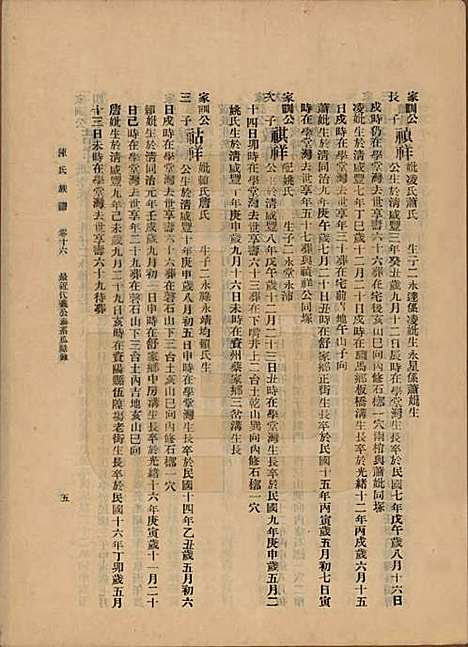 家訓公
長子禎祥 妣凌氏蕭氏 生子二永達係凌妣生永星係蕭妣生
公生於清咸豐三年癸丑歲九月十二日辰時在學堂灣生長卒於民國七年戊午歲八月十六日
戌時仍在學堂灣去世享壽六十六葬在宅後亥山巳向內修石槨一穴兩棺與蕭妣同塚
凌妣生於清咸豐七年丁巳歲十一月二十八日戌時在駟馬鄉板橋溝生長卒於光緒十二年丙戌歲六月十五
日戌時在學堂灣去世享壽三十葬在宅前地午山子向
蕭妣生於清同治九年庚午歲二月二十日丑時在舒家鄉正街生長卒於民國十五年丙寅歲五月初七日寅
時在學堂灣去世享壽五十七葬與禎祥公同塚
家訓公
次子祺祥 妣姚氏 生子二永堂永沛
公生於清咸豐八年戊午歲十二月二十三日丑時在學堂灣生長卒於民國九年庚申歲五月二
十四日卯時在學堂灣去世享壽六十三葬在下嘴井上二台土乾山巽向內修石槨一穴
姚氏生於清咸豐十年庚申歲九月十六日未時在資州蔡家鄉三岔溝生長
家訓公
三子祜祥 妣鍾氏詹氏 生子二永隆永靖均鍾氏生
公生於清咸豐十年庚申歲九月十五日申時在學堂灣生長卒於民國十四年乙丑歲五月初六
日戌時在學堂灣去世享壽六十六葬在磬石山下三台土亥山巳向內修石槨一穴
鍾妣生於清同治元年壬戌歲九月初三日申時在舒家鄉中房溝生長卒於光緒十六年庚寅歲十一月二十
日巳時在學堂灣去世享年二十九葬在磬石山下三台土內吉地亥山巳向
詹妣生於清咸豐九年己未歲九月二十九日亥時在資陽縣伍隍場老街生長卒於民國十六年丁卯歲五月
十三日未時在學堂灣去世享壽六十九待葬
陳氏族譜 卷十六 五